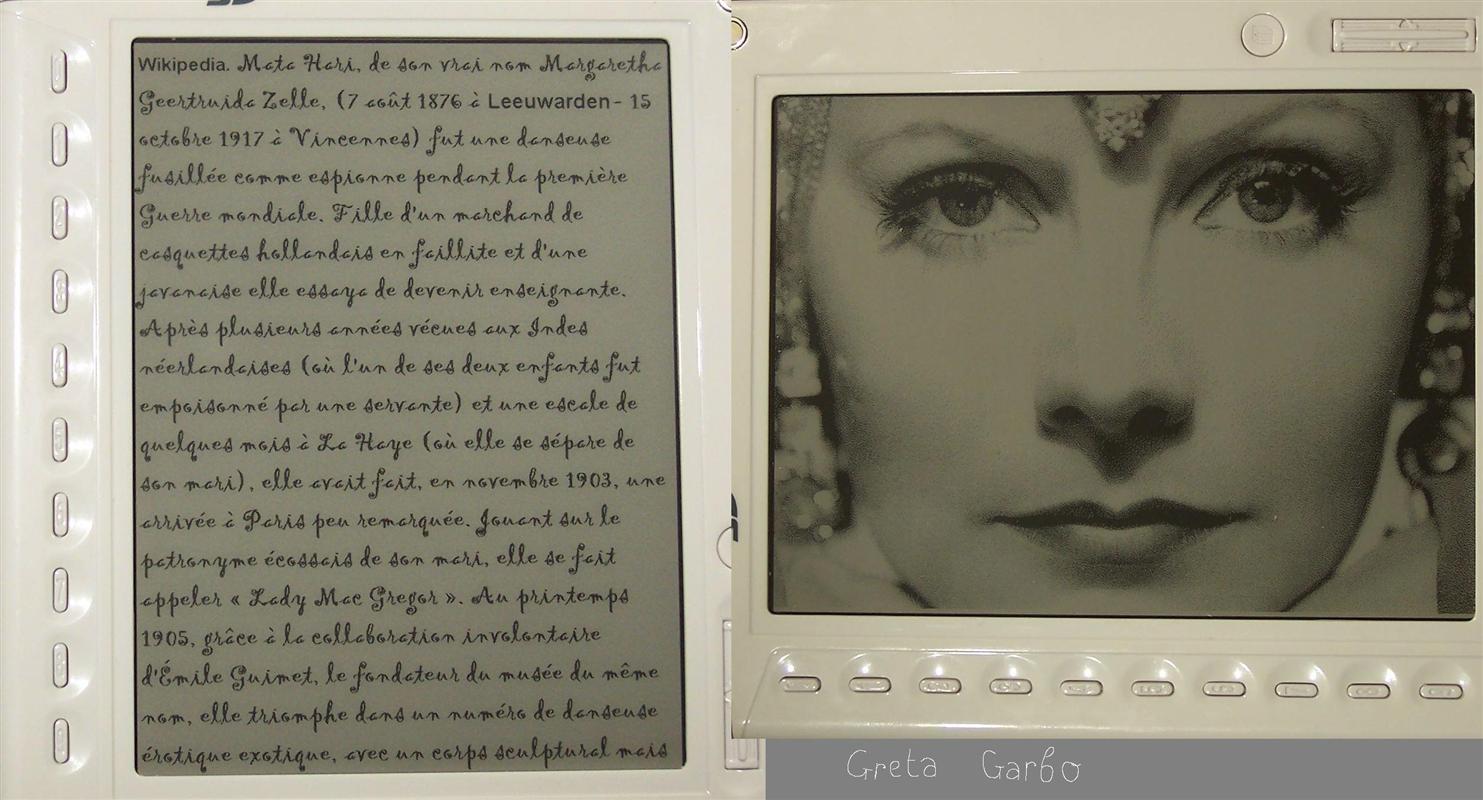 Wikipedia. Mata Hari, de son vrai nom Margaretha
Geertruida Zelle, (7 août 1876 à Leeuwarden - 15
octobre 1917 à Vincennes) fut une danseuse
fusillée comme espionne pendant la première
Guerre mondiale. Fille d'un marchand de
casquettes hollandais en faillite et d'une
javanaise elle essaya de devenir enseignante.
Après plusieurs années vécues aux Indes
néerlandaises (où l'un de ses deux enfants fut
empoisonné par une servante) et une escale de
quelques mois à La Haye (où elle se sépare de
son mari), elle avait fait, en novembre 1903, une
arrivée à Paris peu remarquée. Jouant sur le
patronyme écossais de son mari, elle se fait
appeler « Lady Mac Gregor ». Au printemps
1905, grâce à la collaboration involontaire
d'Émile Guimet, le fondateur du musée du même
nom, elle triomphe dans un numéro de danseuse
érotique exotique, avec un corps sculptural mais
Greta Garbo